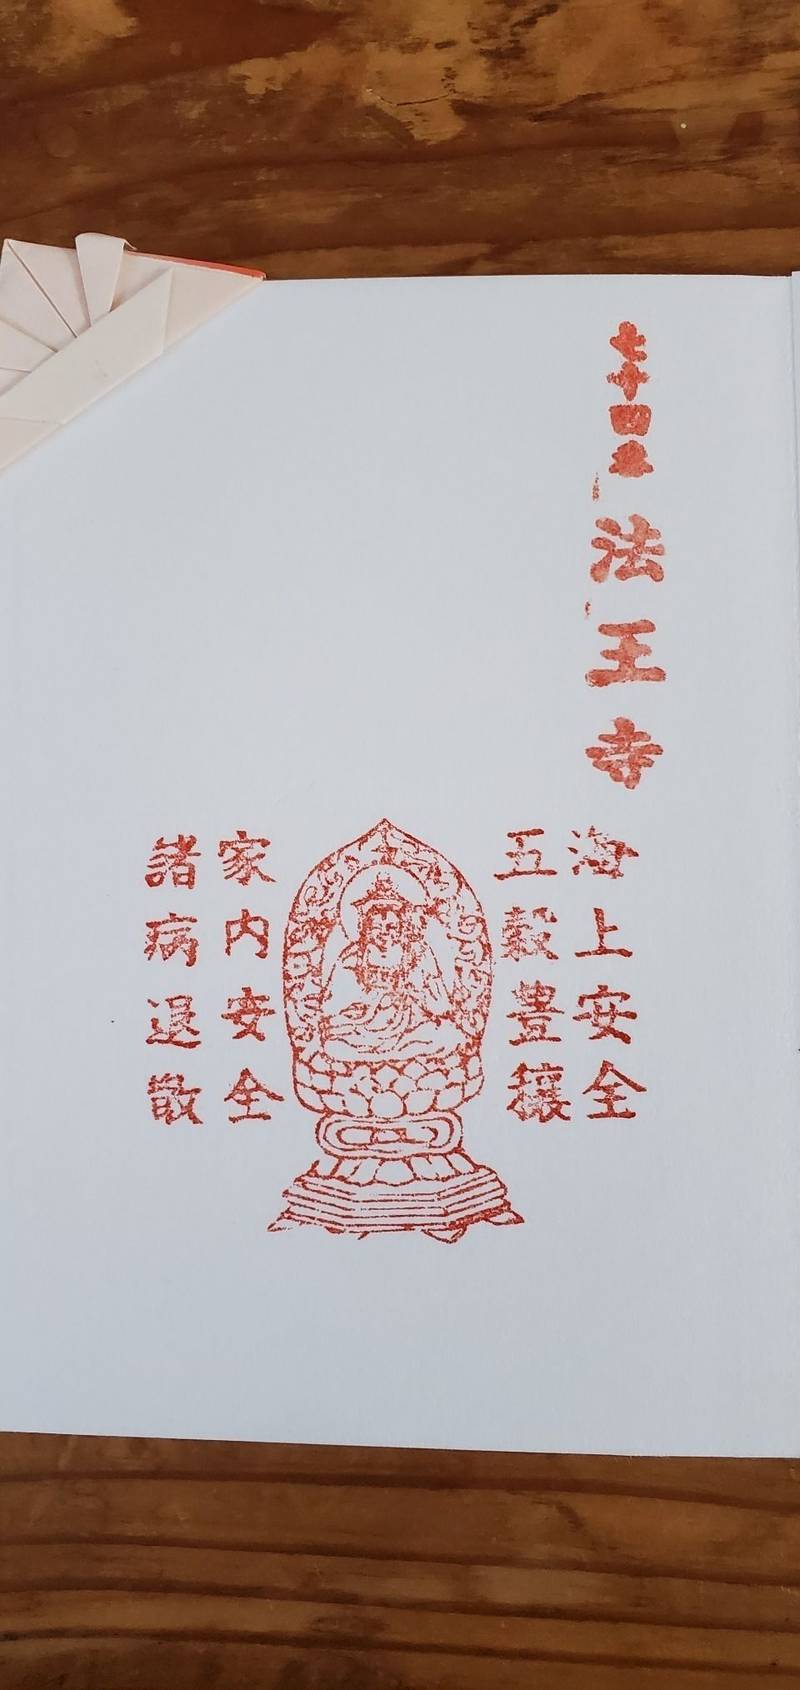 七十四番 法王寺
海上安全
五穀豊穣
家内安全
諸病退散